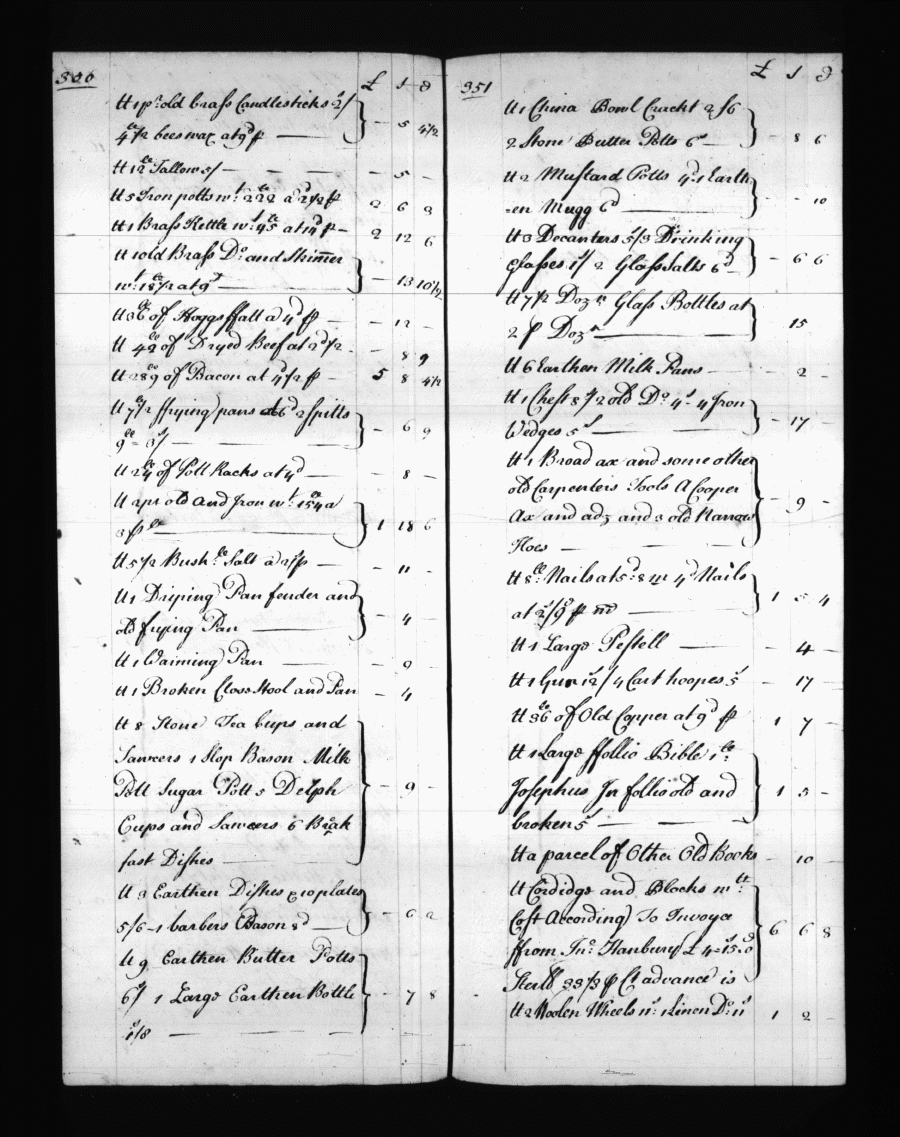 306 £ s d
It 1 pr old brass Candlesticks 2/
4 le 1/2 bees wax at 9d p — - 5 4 1/2
It 12 le Tallow 5/ — - 5 -
It 5 Iron potts wt 222 le a 2d 1/2 p 2 6 3
It 1 Brass Kettle wt 45 le at 14d p 2 12 6
It 1 old Brass Do and Skimer
wt 18 le 1/2 at 9d — - 13 10 1/2
It 36 le of Hoggs ffatt a 4d p - 12 -
It 42 le of Dryed Beef at 2d 1/2 - 8 9
It 289 of Bacon at 4d 1/2 p — 5 8 4 1/2
It 7 le 1/2 ffrying pans at 6d 2 spitts
9 le 3/ — - 6 9
It 24 le of Pott Racks at 4d — - 8 -
It 2 pr old And Iron wt 154 le a
3 p le — 1 18 6
It 5 1/2 Bushle Salt a 2/ p — - 11 -
It 1 Driping Pan fender and
old frying Pan — - 4 -
It 1 Warming Pan — - 9 -
It 1 Broken Closs Stool and Pan - 4
It 8 Stone Tea Cups and
Sawcers 1 Slop Bason Milk
Pott Sugar Pott 5 Delph - 9 -
Cups and Sawcers 6 Breāk
fast Dishes —
It 3 Earthen Dishes & 10 plates
5/6 - 1 barbers Bason 8d — - 6 2
It 9 Earthen Butter Potts
6/ 1 Large Earthen Bottle - 7 8
1/8 —
351 £ s d
It 1 China Bowl Crackt 2/6
2 Stone Butter Potts 6s — - 8 6
It 2 Mustard Potts 4d 1 Earth
=en Mugg 6d — - - 10
It 3 Decanters 5/ 3 Drinking
Glasses 1/ 2 Glass Salts 6d — - 6 6
It 7 1/2 Dozn Glass Bottles at
2 p Dozn — 15
It 6 Earthen Milk Pans — - 2 -
It 1 Chest 8/ 2 old Do 4s 4 Iron
Wedges 5s — - 17 -
It 1 Broad ax and some other
old Carpenters Tools A Cooper
Ax and adz and 3 old Narrow - 9 -
Hoes —
It 8 le Nails at 5d 8 m 4d Nails
at 2/9 p m — 1 5 4
It 1 Large Pestell — - 4 -
It 1 Gun 12/ 4 Cart hoopes 5s - 17 -
It 36 le of Old Copper at 9d p 1 7 -
It 1 Large ffollio Bible
Josephus In follio old and 1 5 -
broken 5s —
It a parcel of Other Old Books - 10 -
It Cordidge and Blocks wtt
Cost According To Invoyce 6 6 8
ffrom Jno Hanbury £ 4 - 15 0
Sterll 33 1/3 p Ct advance is
It 2 Woolen Wheels 11s 1 Linen Do 11s 1 2 -